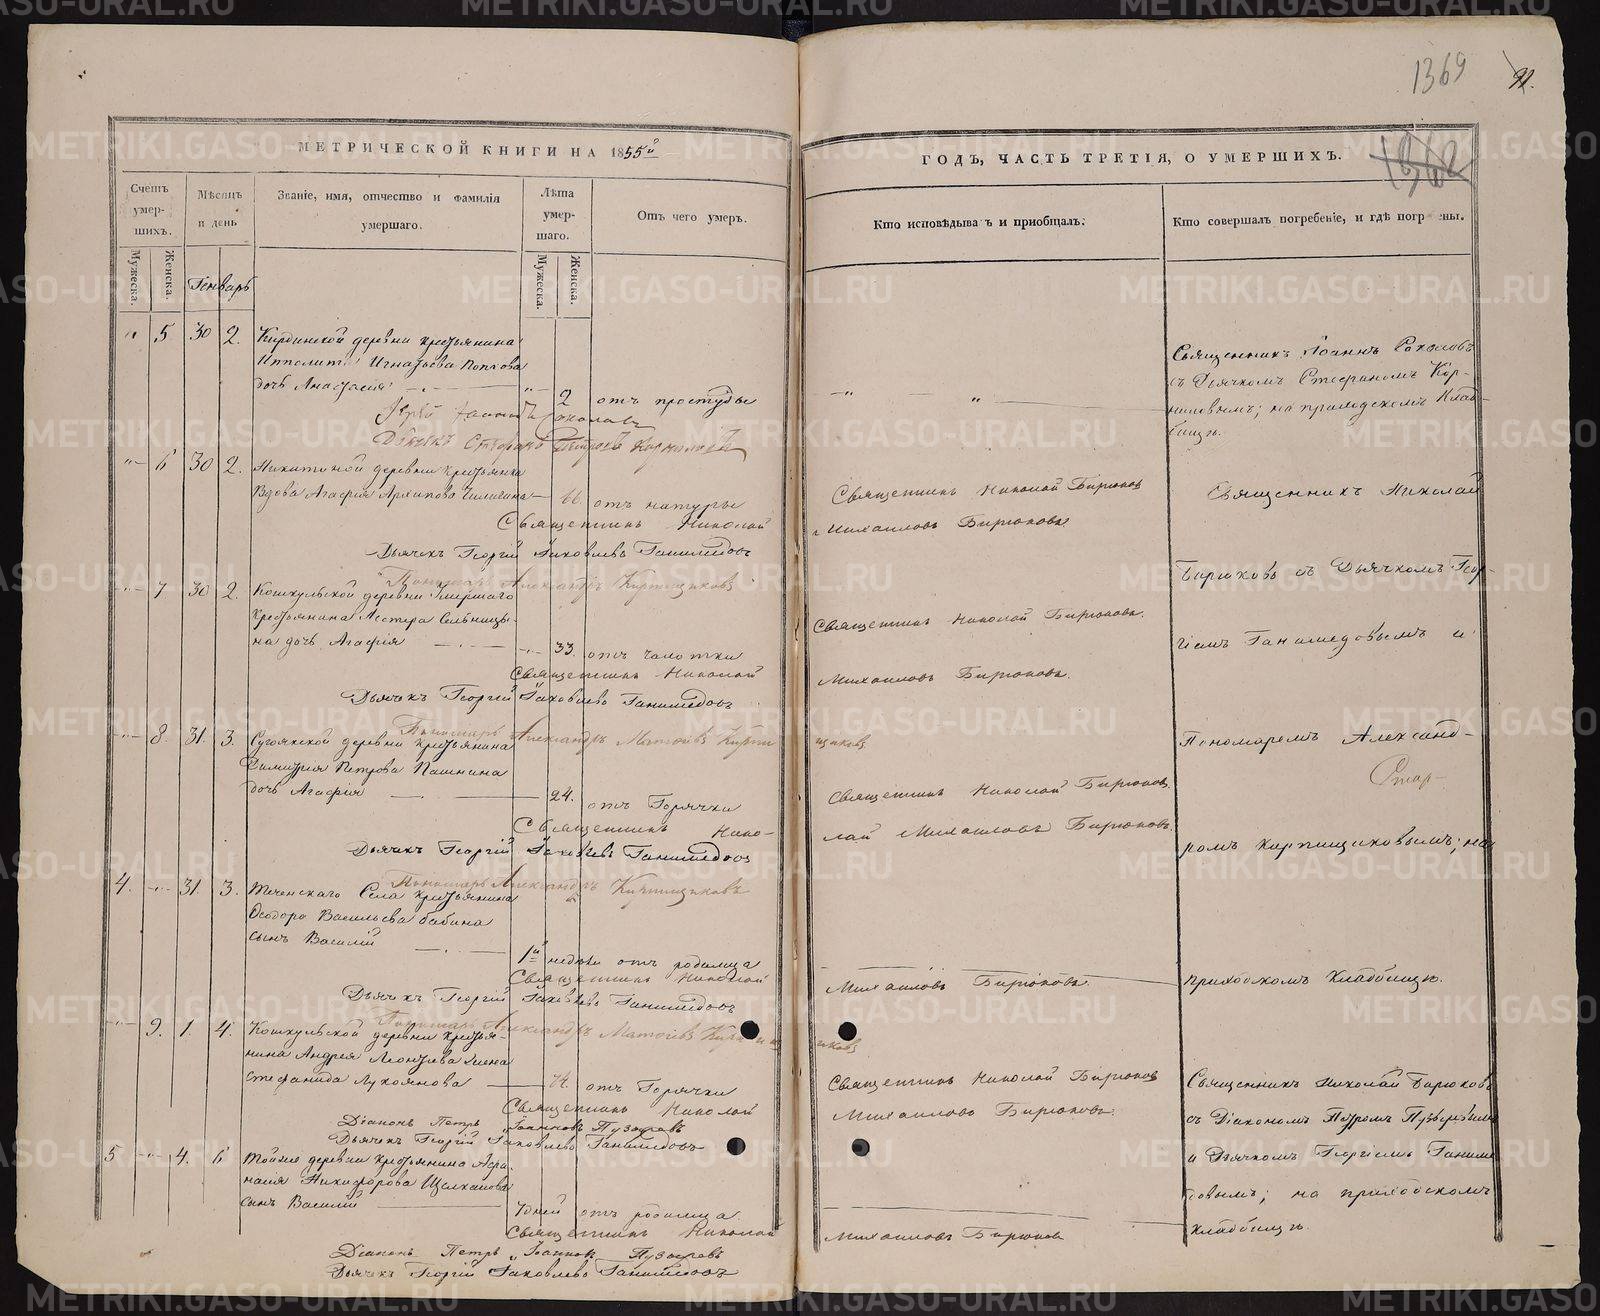 1369
МЕТРИЧЕСКОЙ КНИГИ НА 1855й
ГОДЪ, ЧАСТЬ ТРЕТІЯ, О УМЕРШИХЪ.
Счетъ умершихъ.
Мужеска.
Женска.
Мѣсяцъ и день
Генварь
Званіе, имя, отчество и фамилія умершаго.
Лѣта умершаго.
Мужеска.
Женска.
Отъ чего умеръ.
Кто исповѣдывалъ и пріобщалъ.
Кто совершалъ погребеніе, и гдѣ погребены.
" 5 30 2. деревни крестьянина
Ипполита Игнатьева Попкова
дочь Анастасія 2 отъ простуды
Іерей Іоаннъ Соколовъ
Дьячекъ Стефанъ Петровъ Корниловъ
Священникъ Іоаннъ Соколовъ
съ Дьячкомъ Стефаномъ Кор-
ниловымъ; на приходскомъ Клад-
бищѣ.
" 6 30 2. Никитиной деревни крестьянка
Вдова Агафія Архипова отъ натуры
Священникъ Николай
Дьячекъ Георгій Яковлевъ Ганимедовъ
Пономарь Александръ Кирпищиковъ
Священникъ Николай Бирюковъ
Михаиловъ Бирюковъ
Священникъ Николай
" 7 30 2. Кошкульской деревни умершаго
крестьянина Нестера
на дочь Агафія 33. отъ чахотки
Священникъ Николай
Дьячекъ Георгій Яковлевъ Ганимедовъ
Пономарь Александръ Матѳіевъ Кирпи
щиковъ
Священникъ Николай Бирюковъ.
Михаиловъ Бирюковъ.
Бирюковъ съ Дьячкомъ Геор-
гіемъ Ганимедовымъ и
" 8. 31. 3. Сугоякской деревни крестьянина
Димитрія Петрова Пашнина
дочь Агафія 24. отъ Горячки
Священникъ Нико-
Дьячекъ Георгій Яковлевъ Ганимедовъ
Пономарь Александръ Кирпищиковъ
Священникъ Николай Бирюковъ.
лай Михаиловъ Бирюковъ.
Пономаремъ Александ-
ромъ Кирпищиковымъ; на
4. " 31. 3. Теченскаго Села крестьянина
Ѳеодора Васильева бабина
сынъ Василій
1й недѣли отъ родимца
Священникъ Николай
Дьячекъ Георгій Яковлевъ Ганимедовъ
Пономарь Александръ Матѳіевъ Кирпищ
иковъ
Михаиловъ Бирюковъ.
приходскомъ кладбищѣ.
" 9. 1. 4. Кошкульской деревни крестья-
нина Андрея Леонтьева жена
Стефанида Лукоянова отъ Горячки
Священникъ Николай
Діаконъ Петръ Іоанновъ Пузыревъ
Дьячекъ Георгій Яковлевъ Ганимедовъ
Священникъ Николай Бирюковъ
Михаиловъ Бирюковъ.
Священникъ Николай Бирюковъ
съ Діакономъ Петромъ Пузыревымъ
и Дьячкомъ Георгіемъ Ганиме
довымъ; на приходскомъ
кладбищѣ.
5 " 4. 6 Тойже деревни крестьянина Аѳа-
насія Никифорова
сынъ Василій 7 дней отъ родимца
Священникъ Николай
Діаконъ Петръ Іоанновъ Пузыревъ
Дьячекъ Георгій Яковлевъ Ганимедовъ
Михаиловъ Бирюковъ
METRIKI.GASO-URAL.RU